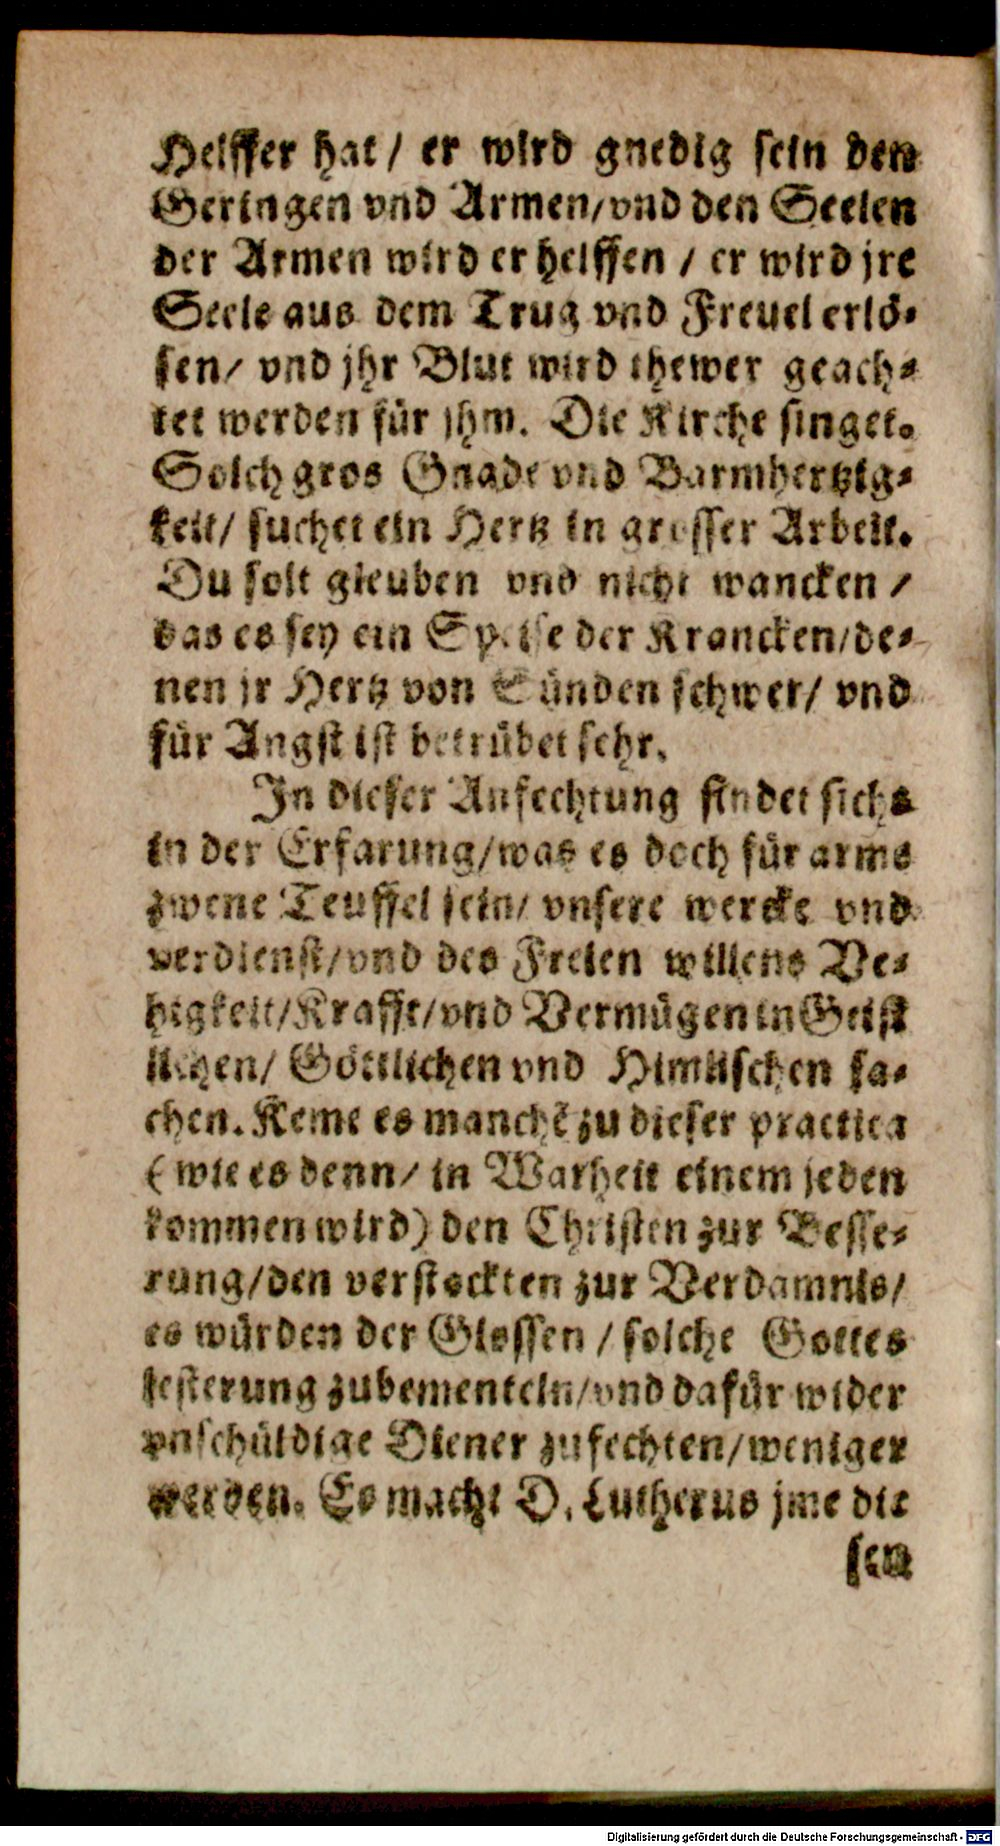 Helffer hat / er wird gnedig sein den
Geringen vnd Armen/vnd den Seelen
der Armen wird er helffen / er wird jre
Seele aus dem Trug vnd Freuel erlö-
sen/ vnd jhr Blut wird thewer geach-
tet werden für jhm. Die Kirche singet.
Solch gros Gnade vnd Barmhertzig-
keit/ suchet ein Hertz in grosser Arbeit.
Du solt gleuben vnd nicht wancken /
das es sey ein Speise der Krancken/de-
nen jr Hertz von Sünden schwer/ vnd
für Angst ist betrübet sehr.
In dieser Anfechtung findet sichs
in der Erfarung/was es doch für arme
zwene Teuffel sein/ vnsere wercke vnd
verdienst/vnd des Freien willens Ve-
higkeit/Krafft/vnd Vermügen in Geist
lichen/ Göttlichen vnd Himlischen sa-
chen. Keme es manchē zu dieser practica
(wie es denn/ in Warheit einem jeden
kommen wird) den Christen zur Besse-
rung/den verstockten zur Verdamnis/
es würden der Glossen / solche Gottes
lesterung zubementeln/vnd dafür wider
vnschüldige Diener zufechten/weniger
werden. Es macht D. Lutherus jme die
sen
Digitalisierung gefördert durch die Deutsche Forschungsgemeinschaft - DFG